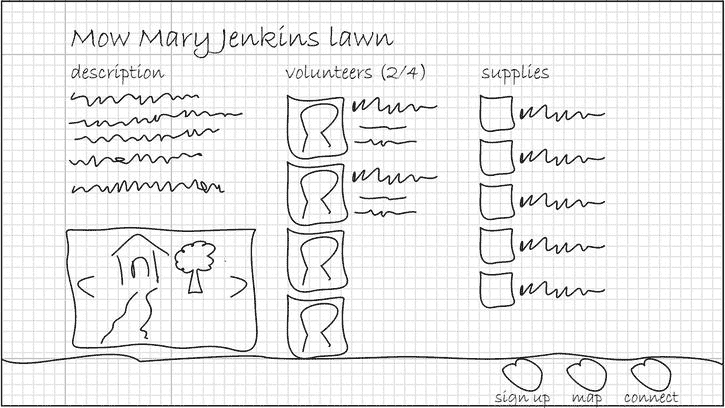 Mow Mary Jenkins lawn
description
volunteers (2/4)
supplies
sign up
map
connect